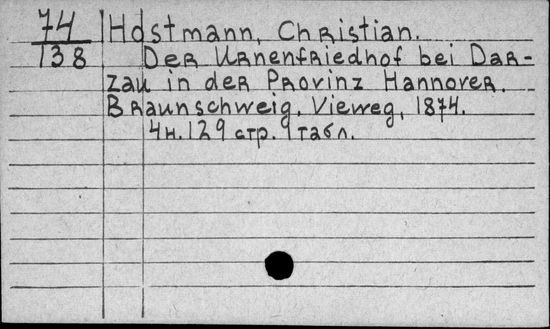 74 Hostmann, Christian.
138 Der Urnenfriedhof bei Dar-
zau in der Provinz Hannover.
Braunschweig, Vieweg, 1874.
4н. 129 стр. 9 табл.